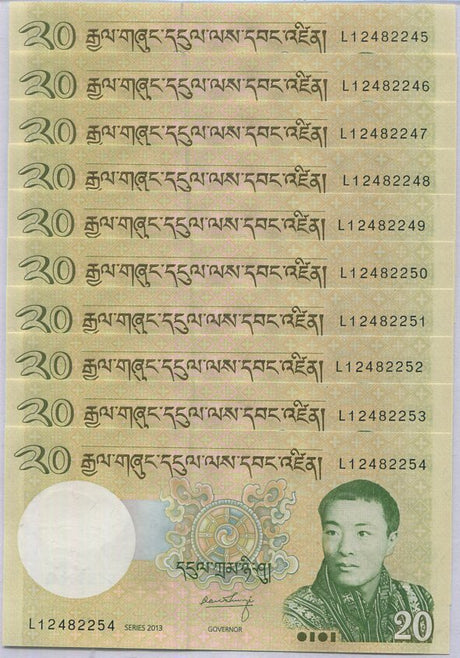 20 རྒྱལ་གཞུང་དངུལ་ལས་དབང་འཛིན། L12482245
20 རྒྱལ་གཞུང་དངུལ་ལས་དབང་འཛིན། L12482246
20 རྒྱལ་གཞུང་དངུལ་ལས་དབང་འཛིན། L12482247
20 རྒྱལ་གཞུང་དངུལ་ལས་དབང་འཛིན། L12482248
20 རྒྱལ་གཞུང་དངུལ་ལས་དབང་འཛིན། L12482249
20 རྒྱལ་གཞུང་དངུལ་ལས་དབང་འཛིན། L12482250
20 རྒྱལ་གཞུང་དངུལ་ལས་དབང་འཛིན། L12482251
20 རྒྱལ་གཞུང་དངུལ་ལས་དབང་འཛིན། L12482252
20 རྒྱལ་གཞུང་དངུལ་ལས་དབང་འཛིན། L12482253
20 རྒྱལ་གཞུང་དངུལ་ལས་དབང་འཛིན། L12482254
དངུལ་ཀྲམ་ཉི་ཤུ།
L12482254 SERIES 2013 GOVERNOR 20